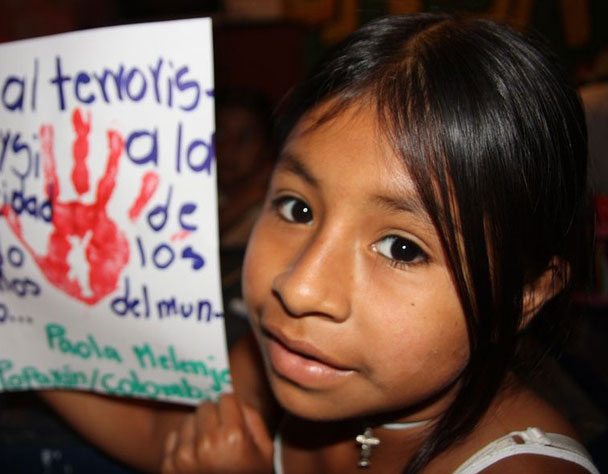 al terroris-
y si a la
idad de
do los
niños del mun-
o...
Paola Melenje
Popayán/Colombia